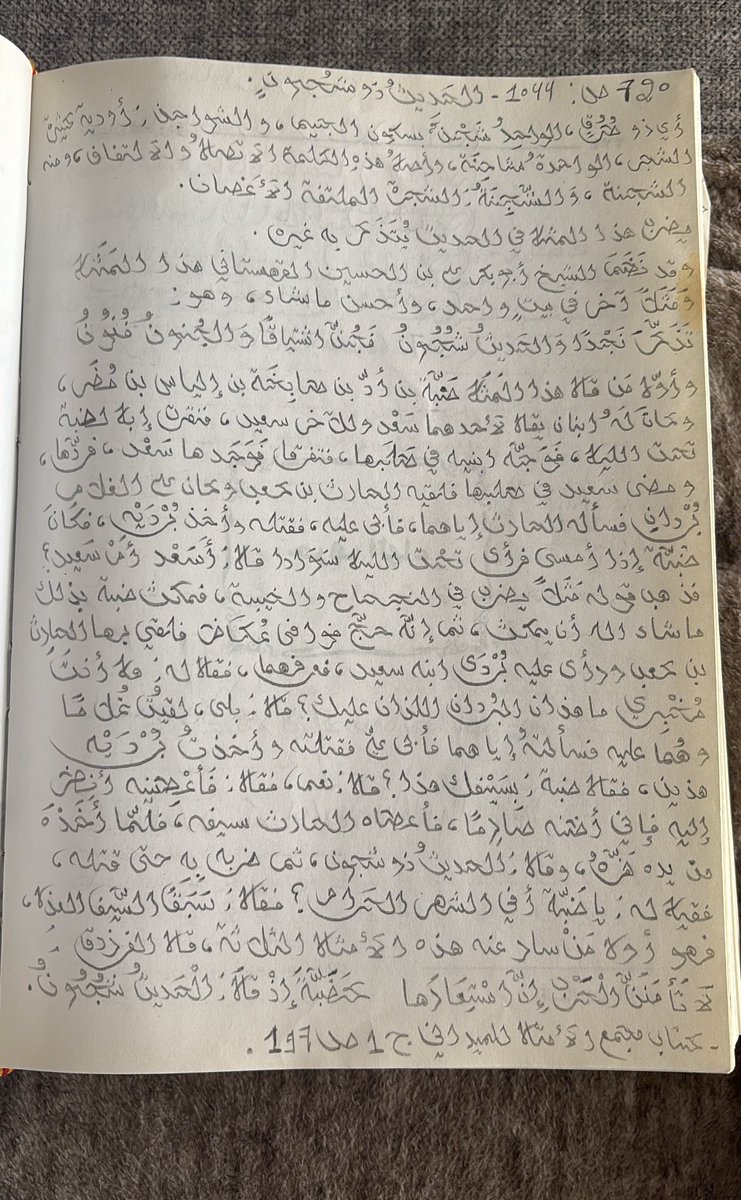 720 ص: 1044 - الحديثُ ذو شُجُونٍ.
أي ذو طُرُقٍ، الواحِدُ شَجْنٌ بسكون الجيم، والشواجن: أودية كثيرة
الشجر، الواحدة شاجِنَة، وأصلُ هذهِ الكلمة الاتصالُ والالتفاف، ومنه
الشجنة، وَالشِّجْنَةُ: الشجرة الملتفة الأغصان.
يضرب هذا المثل في الحديث يُتَذَكر به غيره.
وقد نَظَمَ الشيخ أبو بكر علي بن الحسين القهستاني هذا المَثَلَ
وَمَثَلاً آخر في بيت واحد، وأحسن ما شاء، وهو:
تَذَكَّرَ نَجْدًا وَالحَديثُ شُجُونُ فَجُنَّ اشْتِيَاقًا وَالجُنونُ فُنُونُ
وأولُ مَن قال هذا المَثَلَ ضَبَّة بن أُدّ بن طابِخَة بن إلياس بن مُضَر،
وكانَ لَهُ ابنان يقال لأحدهما سَعْد وللآخر سعيد، فنفرت إبل لضبة
تحت الليل، فَوَجَّهَ ابنيه في طلبها، فتفرقا فَوَجَدها سَعْد، فردَّها،
ومضى سعيد في طلبها فلقيه الحارث بن كعب وكان على الغلام
بُرْدانِ فسأله الحارث إياهما، فأبى عليه، فقتله وأخذ بُرْدَيْه، فكانَ
ضَبَّة إذا أمسى فرأى تحت الليل سَوَادا قال: أَسَعْد أمْ سَعِيد؟
فذهب قوله مَثَلاً يضرب في النجاح والخيبة، فمكث ضبة بذلك
ما شاء الله أن يمكث، ثم إنَّهُ حَجَّ فوافى عُكَاظ فلقي بها الحارث
بن كعب ورأى عليه بُرْدَي ابنه سعيد، فعرفهما، فقال له: هل أنتَ
مُخْبِرِي ما هذان البُرْدان اللذان عليك؟ قال: بلى، لقيتُ غُلامًا
وهُمَا عليه فسألتهُ إياهما فأبى عليَّ فقتلته وأخذتُ بُرْدَيْه
هذين، فقال ضبة: بِسَيْفِك هذا؟ قال: نعم، فقال: فَأعْطِنِيه أنظر
إليه فإني أظنه صَارِمًا، فأعطاه الحارث سيفه، فَلَمَّا أخَذَهُ
من يده هَزَّهُ، وقال: الحديثُ ذو شجون، ثم ضربه بِهِ حتى قتله،
فقيل له: يا ضَبَّة أفي الشهر الحَرَام؟ فقال: سَبَقَ السَّيفُ العذل،
فهو أول مَنْ سار عنه هذه الأمثال الثلاثة، قال الفرزدق:
لاَ تأمَنَنَّ الحَرْبَ إنَّ اسْتِعَارَها كَضَبَّةَ إذْ قَالَ: الْحَدِيثُ شُجُونُ.
- كتاب مجمع الأمثال للميداني ج 1 ص 197.